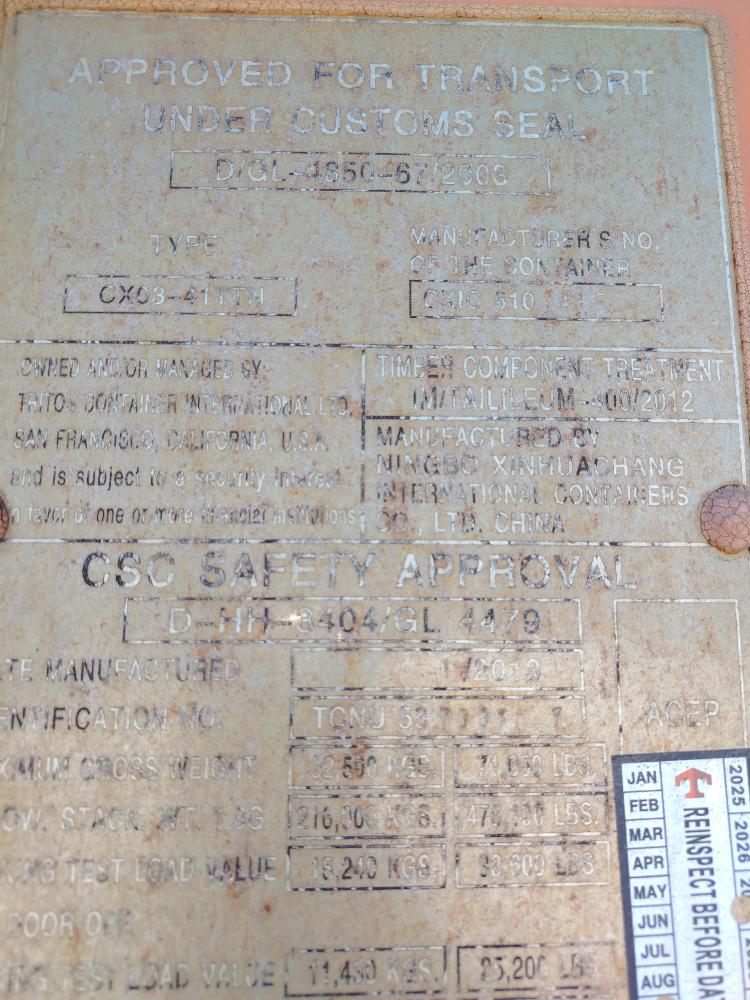 APPROVED FOR TRANSPORT
UNDER CUSTOMS SEAL
D/GL-4850-67/2003
TYPE
MANUFACTURER'S NO.
OF THE CONTAINER
CX03-41TTN
CXIC 510
OWNED AND/OR MANAGED BY
TRITON CONTAINER INTERNATIONAL LTD.
SAN FRANCISCO, CALIFORNIA, U.S.A.
and is subject to a security interest
n favor of one or more financial institutions
TIMBER COMPONENT TREATMENT
IM/TAILILEUM-400/2012
MANUFACTURED BY
NINGBO XINHUACHANG
INTERNATIONAL CONTAINERS
CO., LTD. CHINA
CSC SAFETY APPROVAL
D-HH-3404/GL 4479
TE MANUFACTURED /2013
ENTIFICATION NO. TCNU
ACEP
XIMUM GROSS WEIGHT 32,500 KGS. 71,650 LBS.
OW. STACK. WT. 1.8G 216,000 KGS. 476,190 LBS.
KING TEST LOAD VALUE 15,240 KGS. 33,600 LBS
DOOR OFF
KING TEST LOAD VALUE 11,430 KGS. 25,200 LBS
JAN
FEB
MAR
APR
MAY
JUN
JUL
AUG
T
REINSPECT BEFORE DA
2025 2026